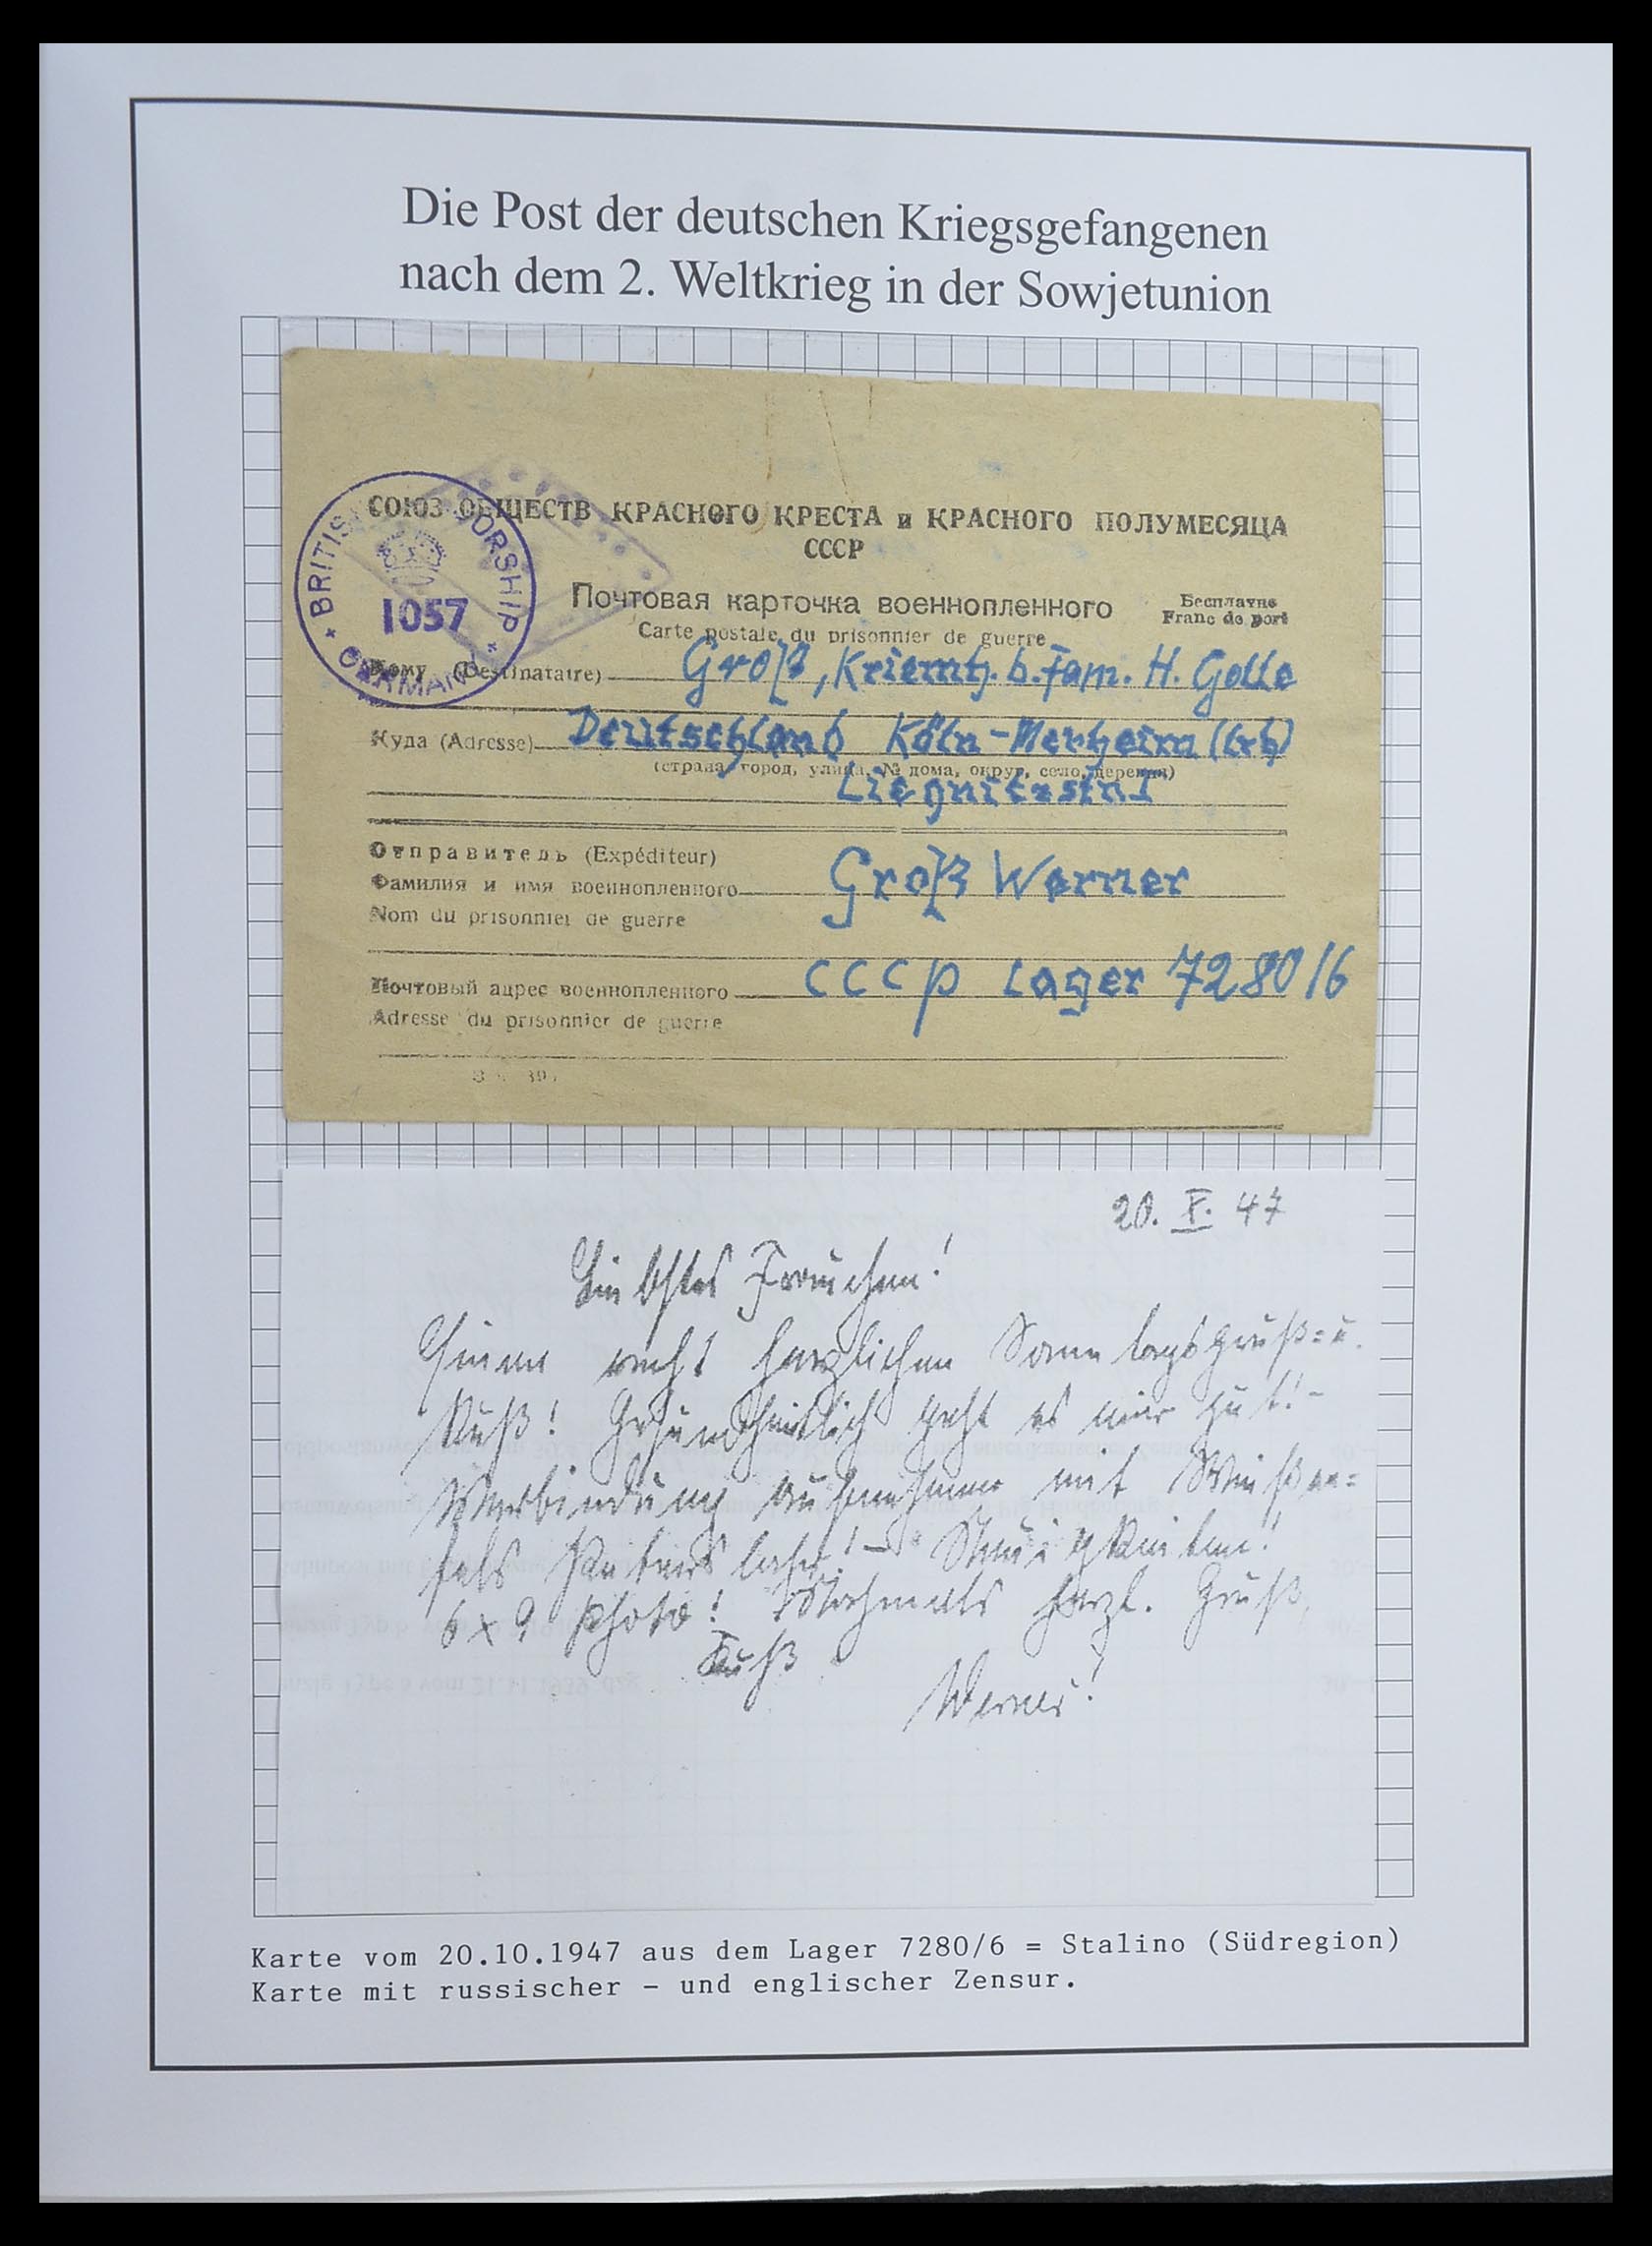 Die Post der deutschen Kriegsgefangenen
nach dem 2. Weltkrieg in der Sowjetunion
СОЮЗ ОБЩЕСТВ КРАСНОГО КРЕСТА и КРАСНОГО ПОЛУМЕСЯЦА
СССР
BRITISH CENSORSHIP
1057
GERMANY
Почтовая карточка военнопленного
Бесплатно
Carte postale du prisonnier de guerre
Franc de port
Кому (Destinataire) Groß, b. Fam. H. Golle
Куда (Adresse) Deutschland Köln-Merheim (lrh)
(страна, город, улица, № дома, округ, село, деревня)
Отправитель (Expéditeur)
Фамилия и имя военнопленного Groß Werner
Nom du prisonnier de guerre
Почтовый адрес военнопленного CCCP Lager 7280/6
Adresse du prisonnier de guerre
20. X. 47
Liebstes Frauchen!
Einen recht herzlichen Sonntagsgruß = u.
Kuß! Gesundheitlich geht es mir gut! -
Verbindung aufnehmen mit
6 x 9 Photo! Nochmals herzl. Gruß,
Kuß
Werner!
Karte vom 20.10.1947 aus dem Lager 7280/6 = Stalino (Südregion)
Karte mit russischer - und englischer Zensur.